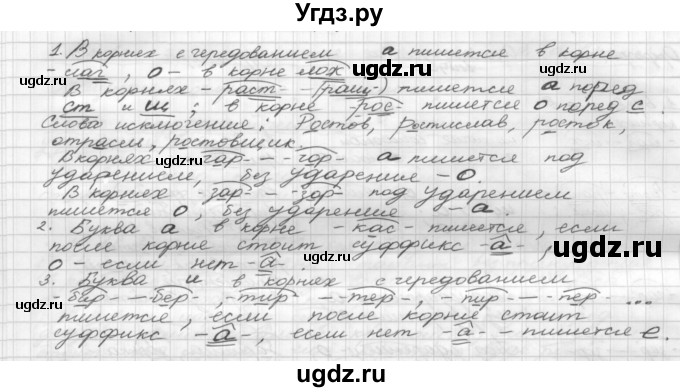 Угдз.ру
1. В корнях с чередованием а пишется в корне
-лаг, о - в корне лож
В корнях - раст- -(ращ-) пишется а перед
ст и щ; в корне -рос- пишется о перед с.
Слова исключения: Ростов, Ростислав, росток,
отрасль, ростовщик.
В корнях -гар- -гор- а пишется под
ударением, без ударения - о.
В корнях -зар- - -зор- под ударением
пишется о, без ударения - а.
2. Буква а в корне -кас- пишется, если
после корня стоит суффикс -а-,
о - если нет -а-.
3. Буква и в корнях с чередованием
-бир- -бер-, -тир- -тер-, -пир- -пер- ...
пишется, если после корня стоит
суффикс -а-, если нет -а- - пишется е.
ugdz.ru ugdz.ru
ugdz.ru ugdz.ru
ugdz.ru ugdz.ru
ugdz.ru ugdz.ru ugdz.ru
ugdz.ru ugdz.ru
ugdz.ru